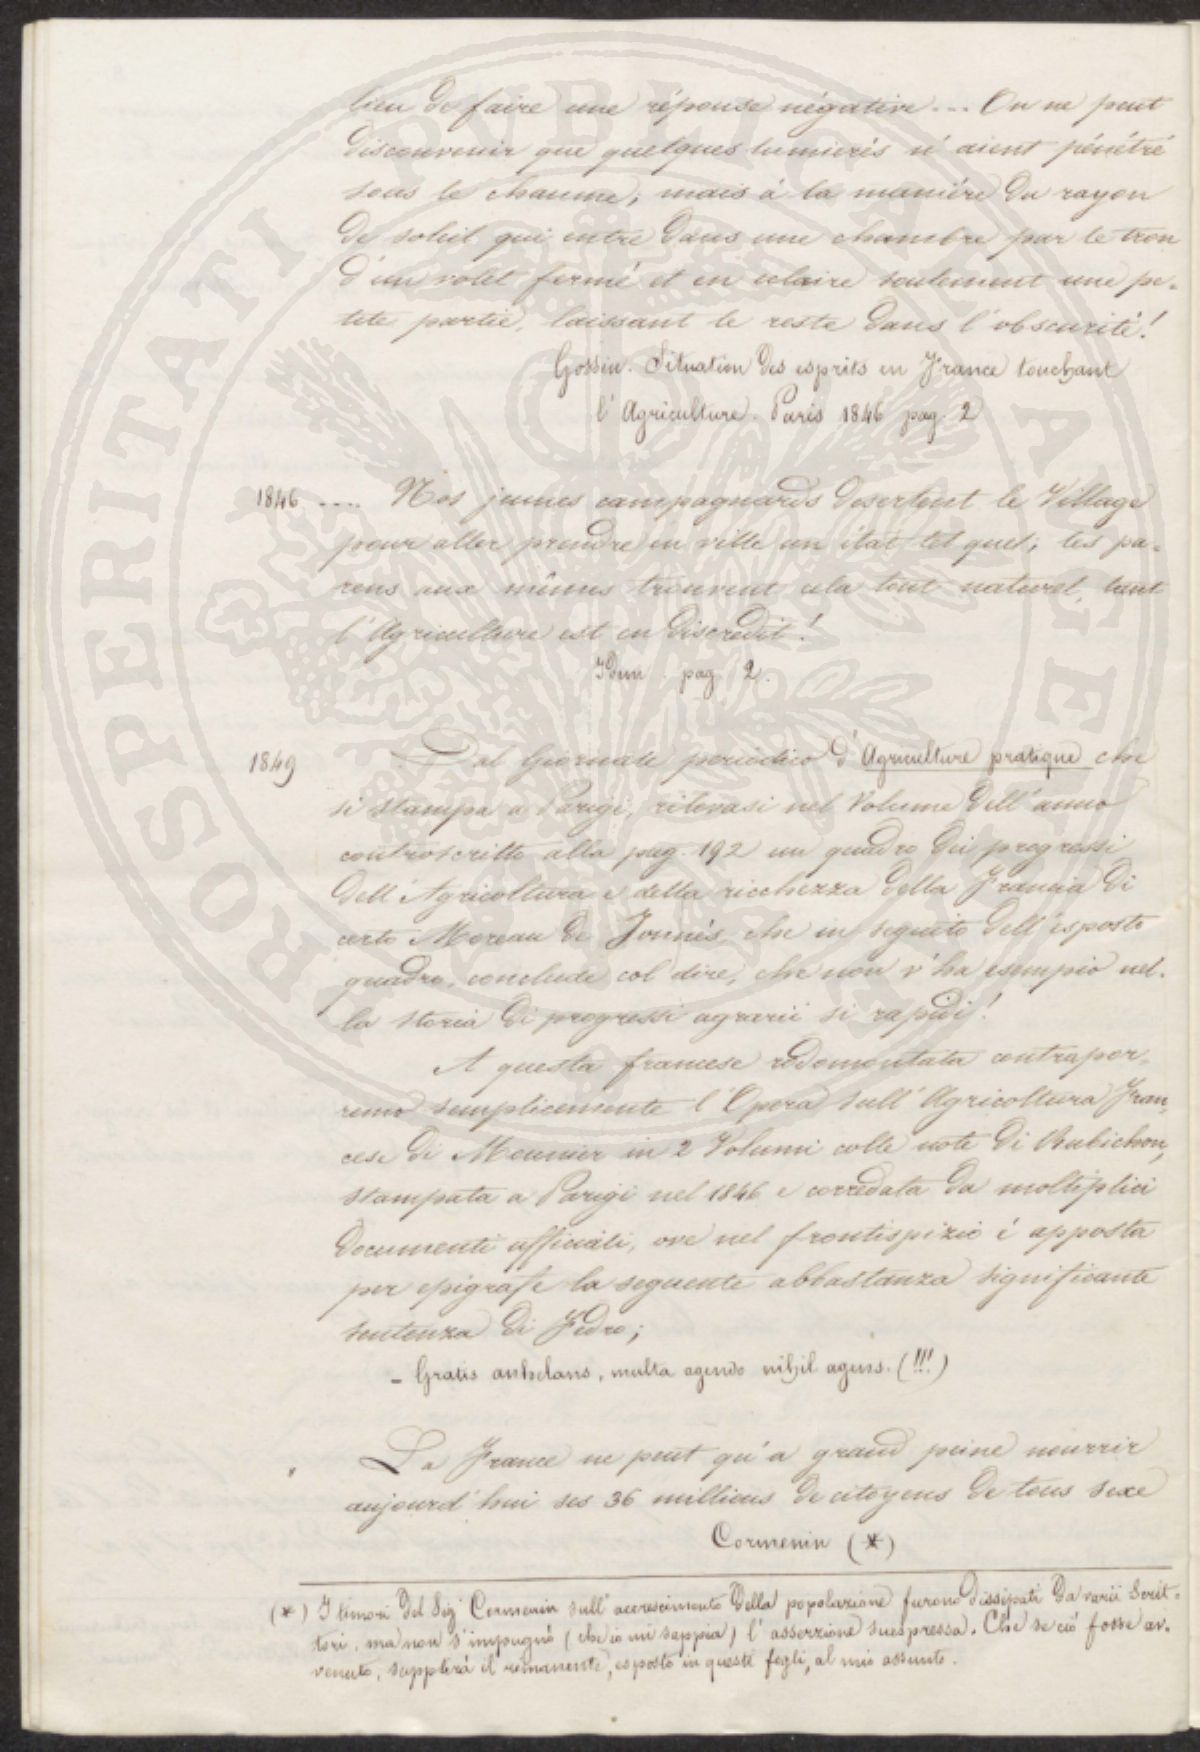 lieu de faire une réponse négative... On ne peut
disconvenir que quelques lumierès n'aient pénétré
sous le chaume, mais á la maniére du rayon
de soleil qui entre dans une chambre par le trou
d'un volet fermé et en eclaire seulement une pe-
tite partie, laissant le reste dans l'obscurité!
Gossin. Situation des esprits en France touchant
l'Agriculture. Paris 1846 pag. 2
1846 .... Nos jeunes campagnards desertent le Village
pour aller prendre en ville un état tel quel; les pa-
rens aux mêmes trouvent cela tout naturel, tant
l'Agriculture est en discredit!
Idem. pag. 2.
1849 Dal Giornale periodico d'Agriculture pratique che
si stampa a Parigi, rilevasi nel Volume dell'anno
controscritto alla pag. 192 un quadro dei progressi
dell'Agricoltura e della ricchezza della Francia di
certo Moreau de Jonnés, che in seguito dell'esposto
quadro, conclude col dire, che non v'ha esempio nel-
la storia di progressi agrarii si rapidi!
A questa francese rodomontata contrapor-
remo semplicemente l'Opera sull'Agricoltura Fran-
cese di Mounier in 2 Volumi colle note di Rubichon,
stampata a Parigi nel 1846 e corredata da moltiplici
documenti officiali, ove nel frontispizio é apposta
per epigrafe la seguente abbastanza significante
sentenza di Fedro;
- Gratis anhelans, multa agendo nihil agens. (!!!)
La France ne peut qu'a grand peine nourrir
aujourd'hui ses 36 millions de citoyens de tous sexe
Cormenin (*)
(*) I timori del Sig. Cormenin sull'accrescimento della popolazione furono dissipati da varii Scrit-
tori, ma non s'impugnó (che io mi sappia) l'asserzione suespressa. Che se ció fosse av-
venuto, supplirá il rimanente, esposto in questi fogli, al mio assunto.
PROSPERITATI PUBLICAE AUGENDAE